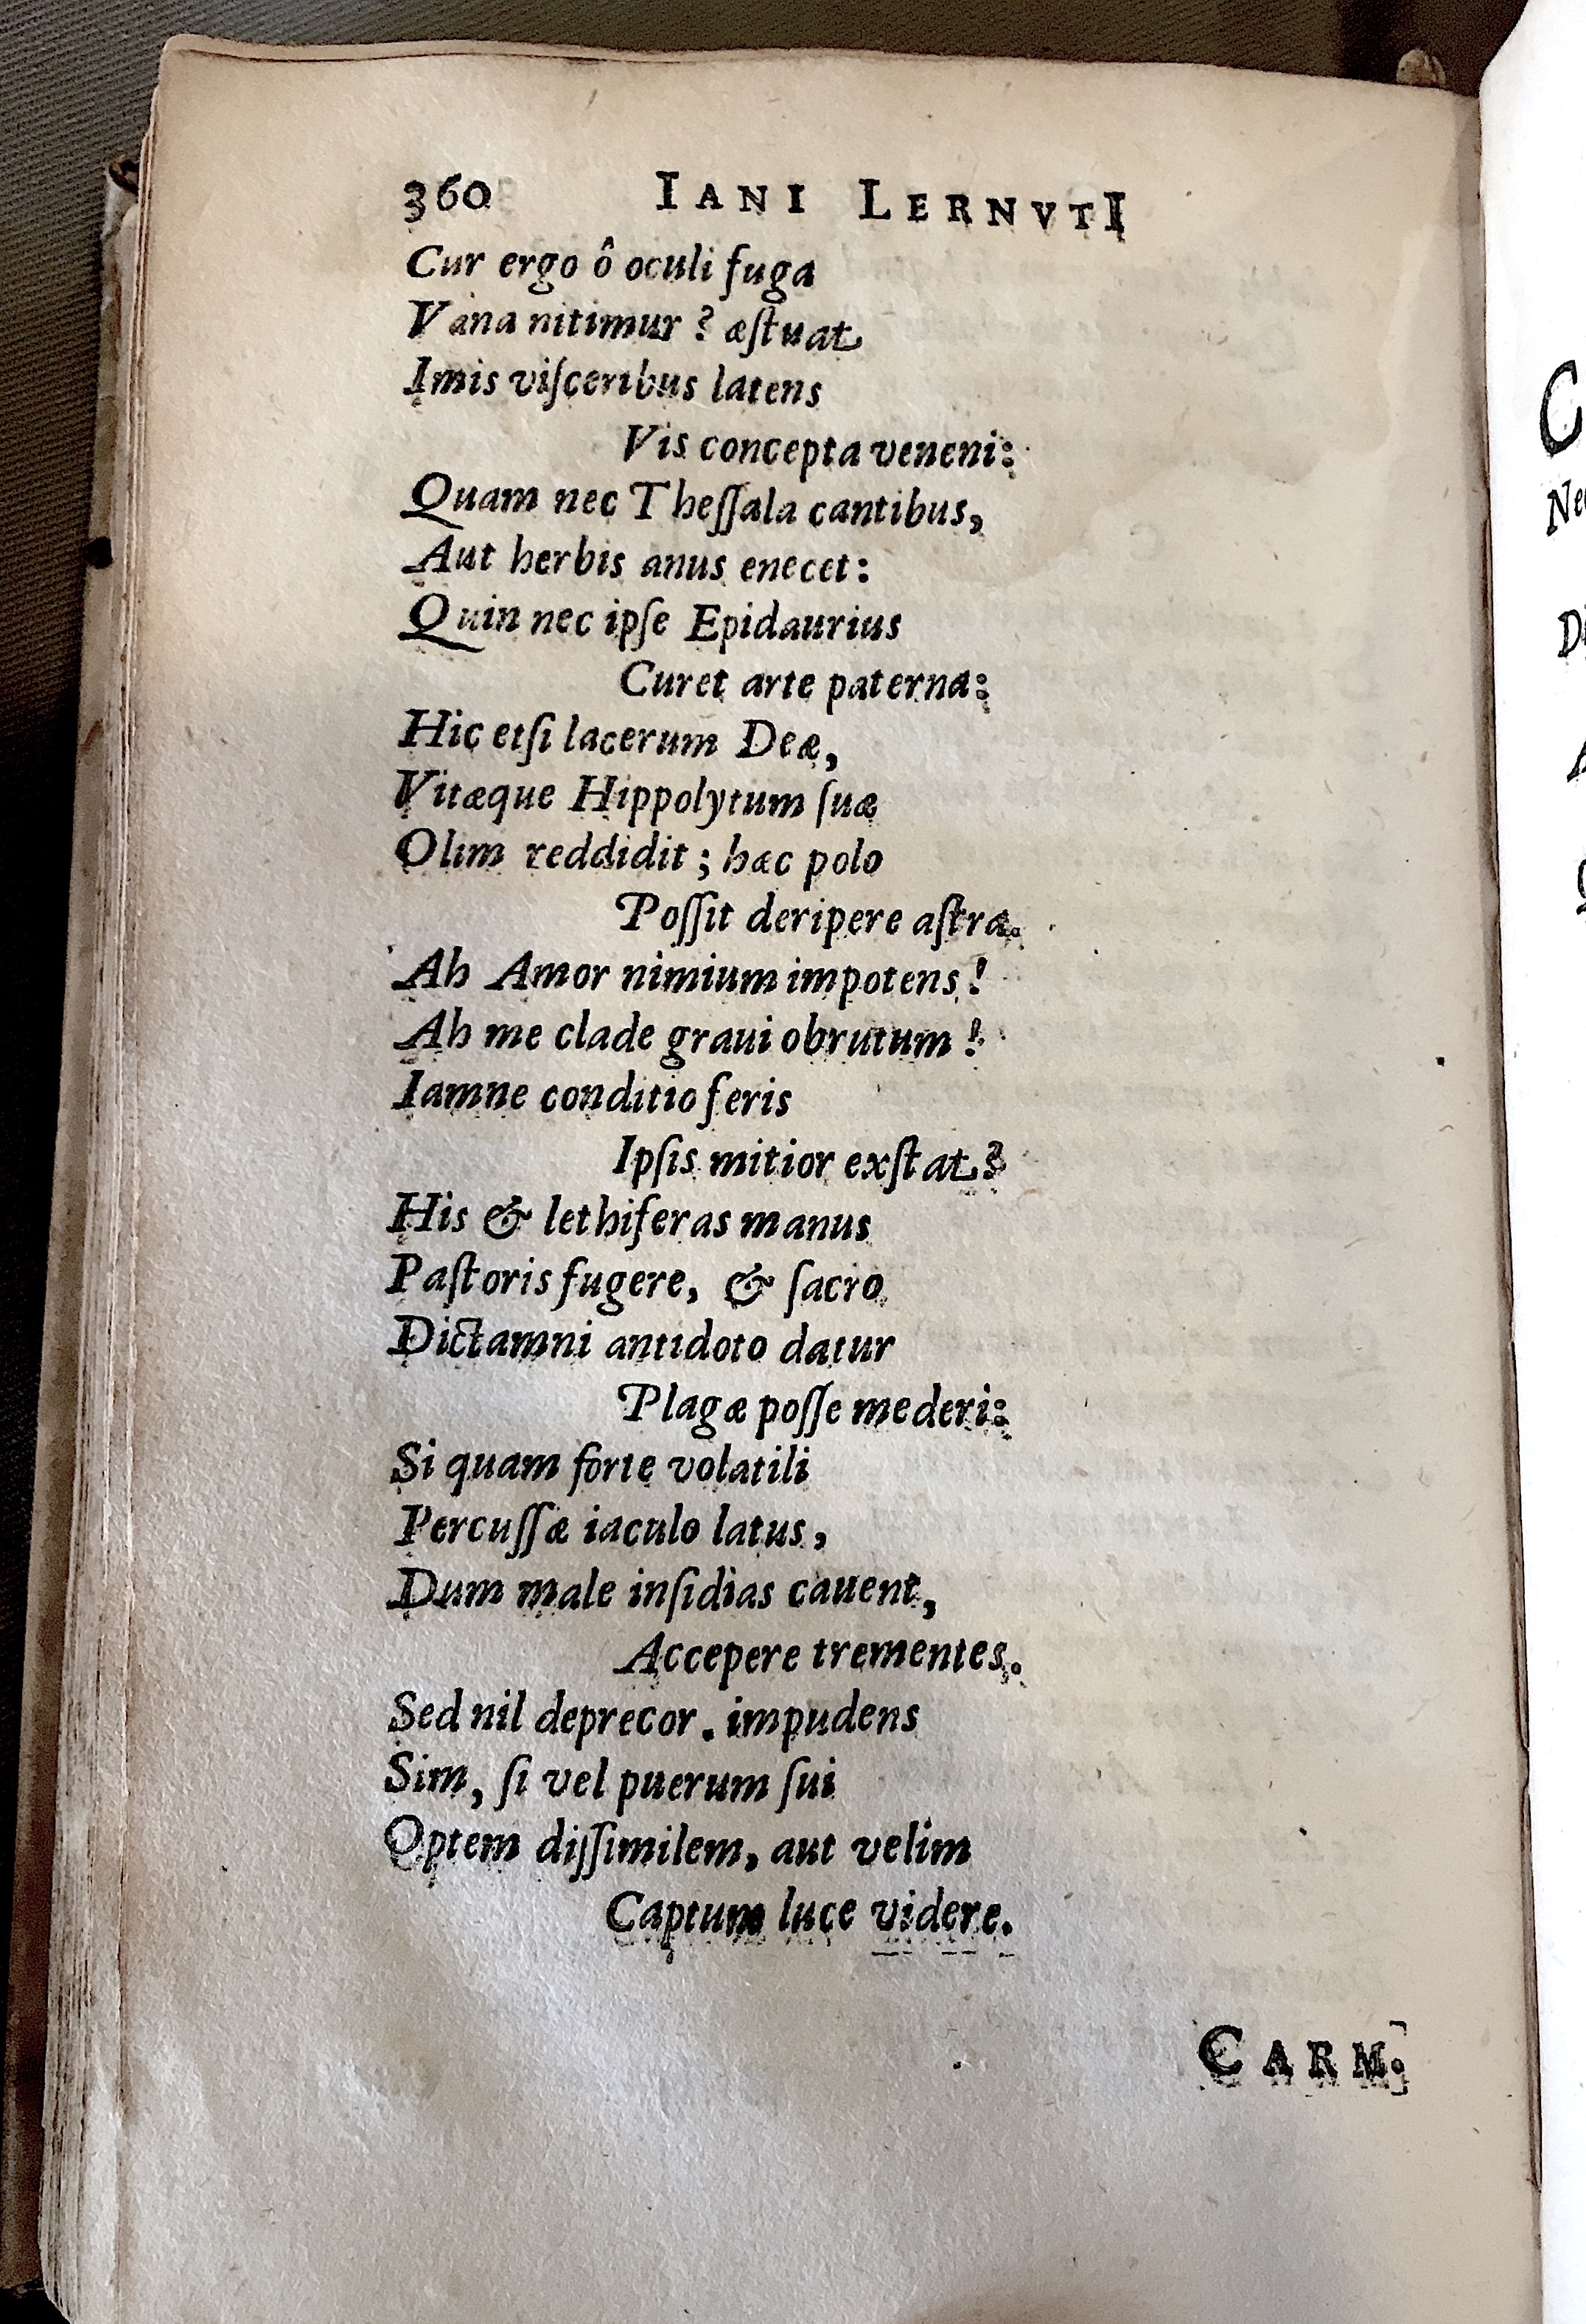 360 IANI LERNVTI
Cur ergo ô oculi fuga
Vana nitimur? æſtuat
Imis viſceribus latens
Vis concepta veneni:
Quam nec Theſſala cantibus,
Aut herbis anus enecet:
Quin nec ipſe Epidaurius
Curet arte paterna:
Hic etſi lacerum Deæ,
Vitæque Hippolytum ſuæ
Olim reddidit; hæc polo
Poſſit deripere aſtra.
Ah Amor nimium impotens!
Ah me clade graui obrutum!
Iamne conditio feris
Ipſis mitior exſtat?
His & lethiferas manus
Paſtoris fugere, & ſacro
Dictamni antidoto datur
Plagæ poſſe mederi:
Si quam forte volatili
Percuſſæ iaculo latus,
Dum male inſidias cauent,
Accepere trementes.
Sed nil deprecor. impudens
Sim, ſi vel puerum ſui
Optem diſſimilem, aut velim
Captum luce videre.
CARM.
C